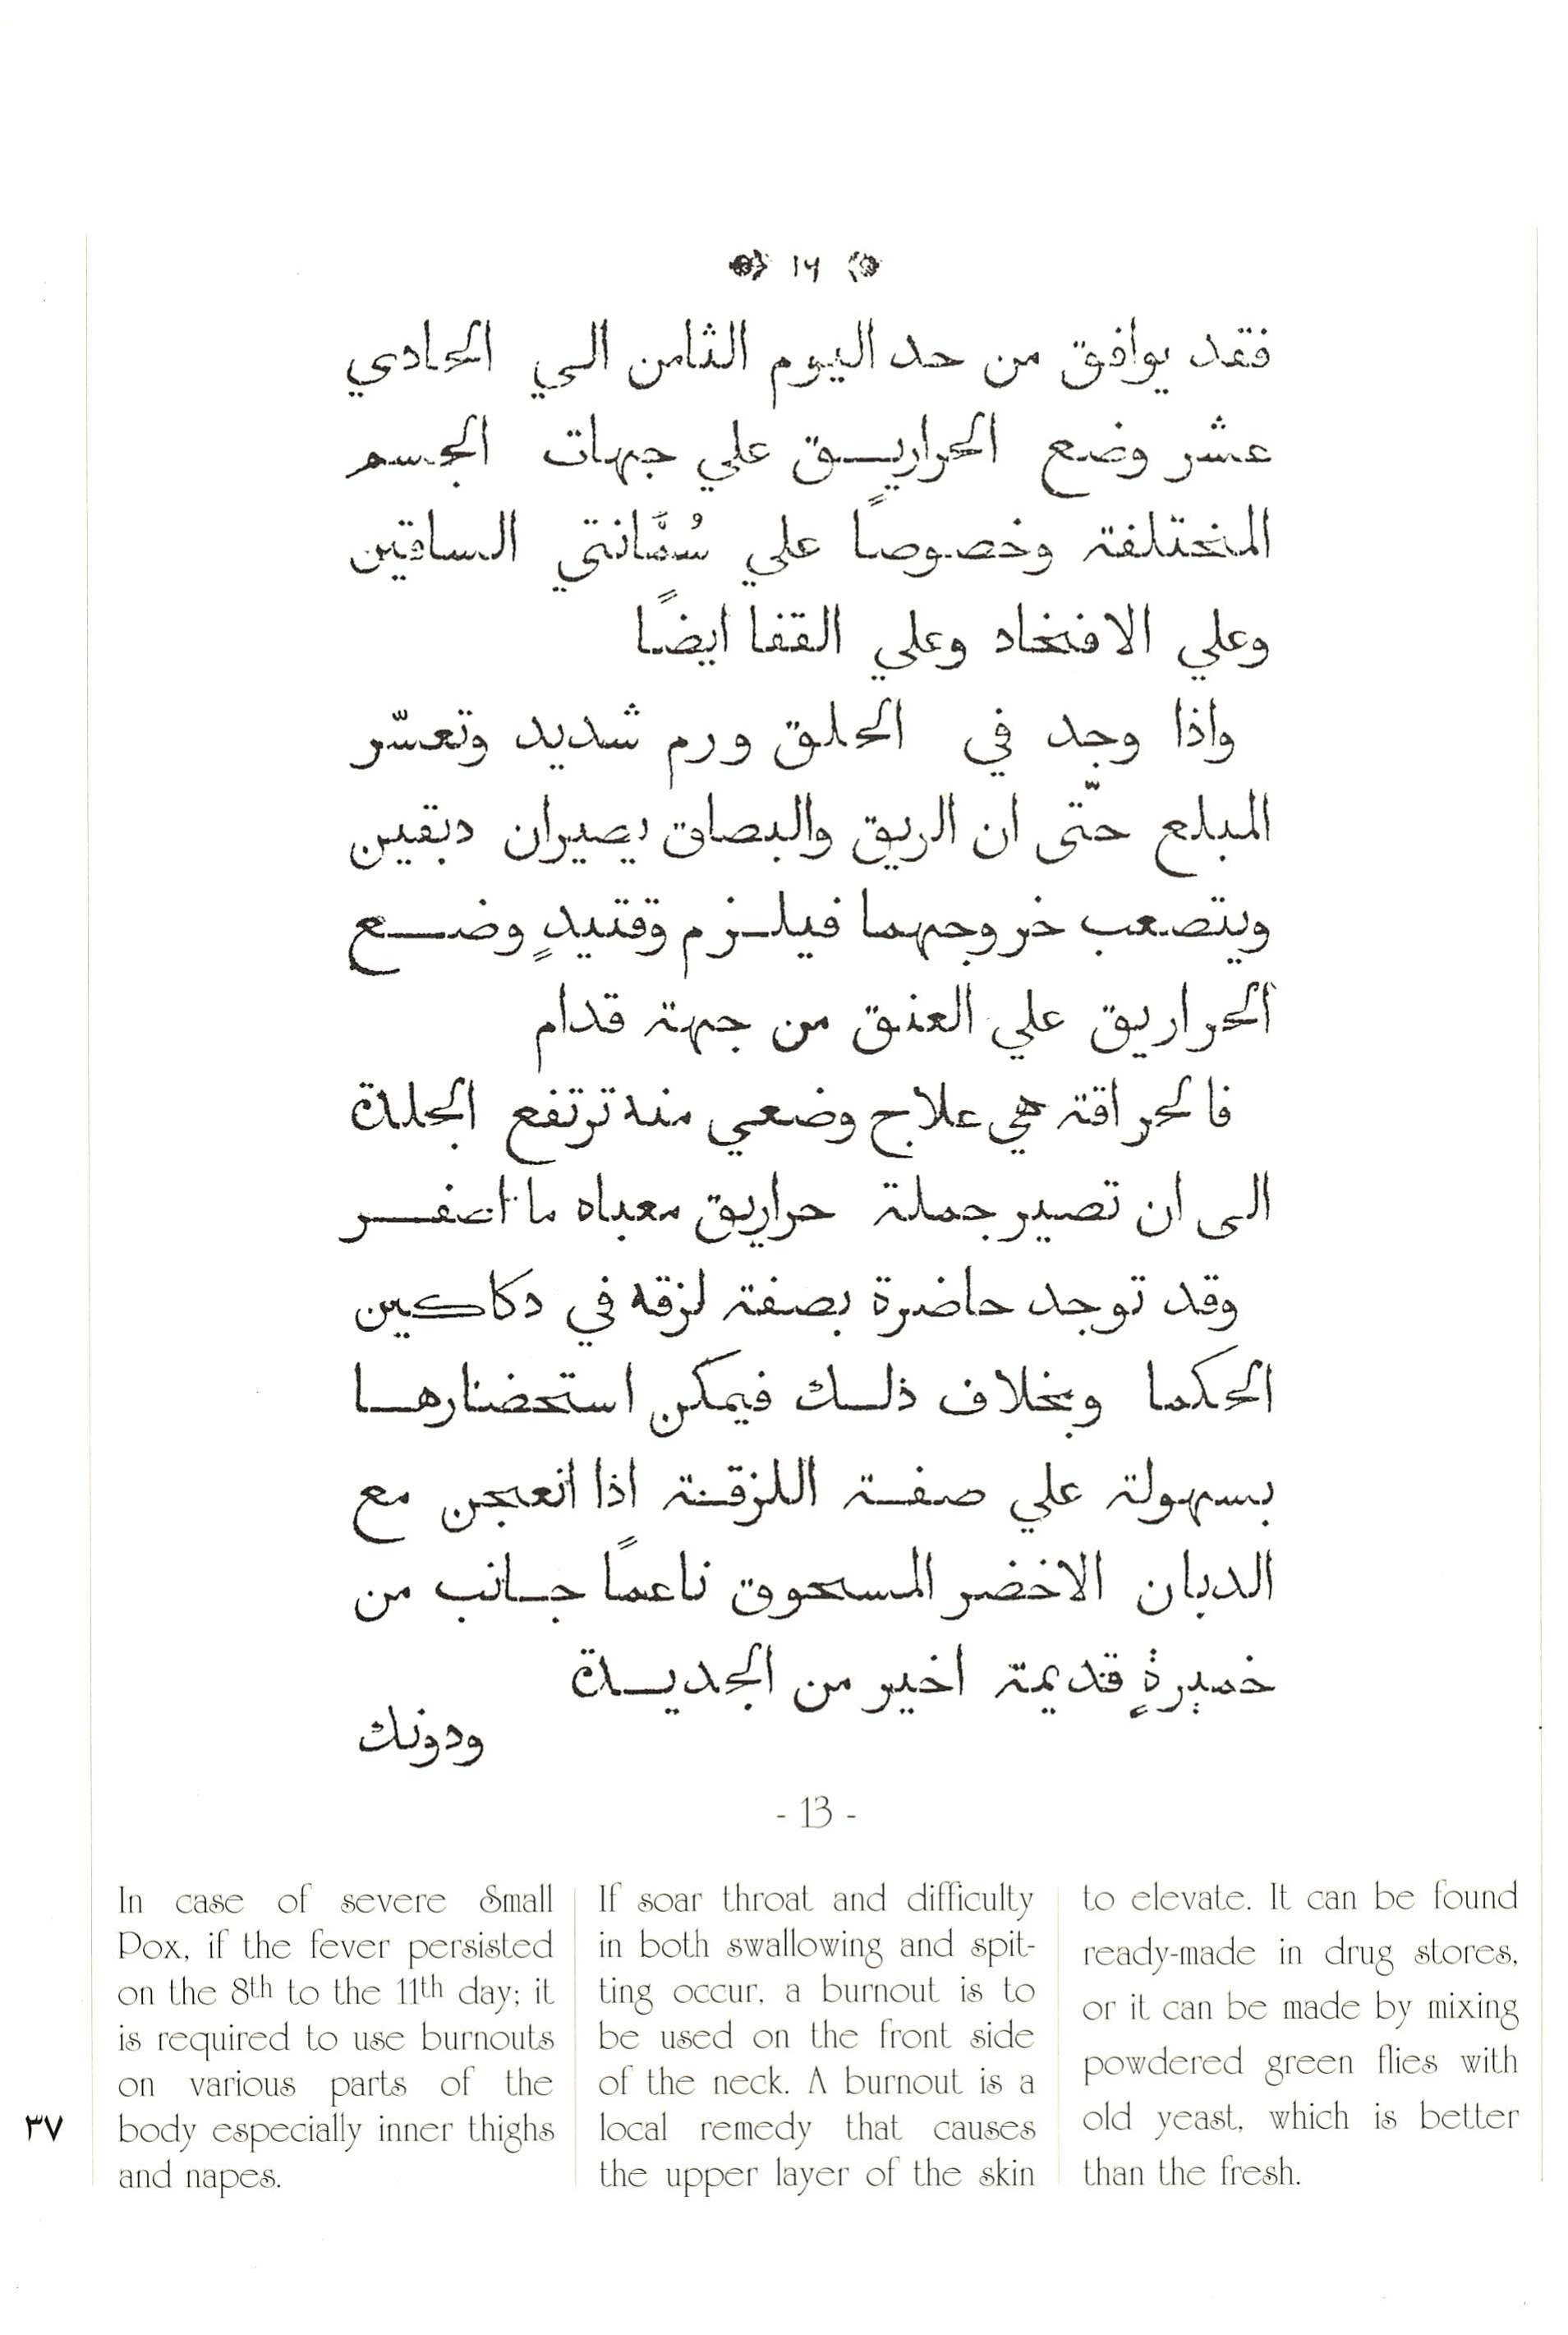 ١٣
فقد يوافق من حد اليوم الثامن الي الحادي
عشر وضع الحراريق علي جهات الجسم
المختلفة وخصوصًا علي سُمَّانتي الساقين
وعلي الافخاد وعلي القفا ايضًا
واذا وجد في الحلق ورم شديد وتعسّر
المبلع حتّى ان الريق والبصاق يصيران دبقين
ويتصعب خروجهما فيلزم وقتيدٍ وضع
الحراريق علي العنق من جهة قدام
فالحراقة هي علاج وضعي منه ترتفع الجلدة
الى ان تصير جملة حراريق معباه ما اصفر
وقد توجد حاضرة بصفة لزقه في دكاكين
الحكما وبخلاف ذلك فيمكن استحضارها
بسهولة علي صفة اللزقة اذا انعجن مع
الدبان الاخضر المسحوق ناعمًا جانب من
خميرةٍ قديمة اخير من الجديدة
ودونك
- 13 -
In case of severe Small
Pox, if the fever persisted
on the 8th to the 11th day; it
is required to use burnouts
on various parts of the
body especially inner thighs
and napes.
If soar throat and difficulty
in both swallowing and spit-
ting occur, a burnout is to
be used on the front side
of the neck. A burnout is a
local remedy that causes
the upper layer of the skin
to elevate. It can be found
ready-made in drug stores,
or it can be made by mixing
powdered green flies with
old yeast, which is better
than the fresh.
٣٧